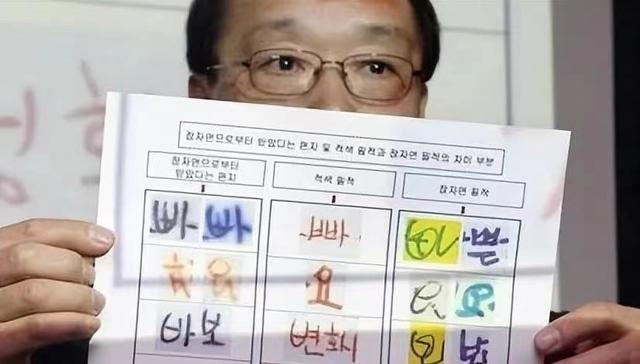 장자연으로부터 받았다는 편지 및 적색 필적과 장자연 필적의 차이 부분
장자연으로부터 받았다는 편지
적색 필적
장자연 필적
빠 빠
빠
쁜
요
요
바보
변호사
보